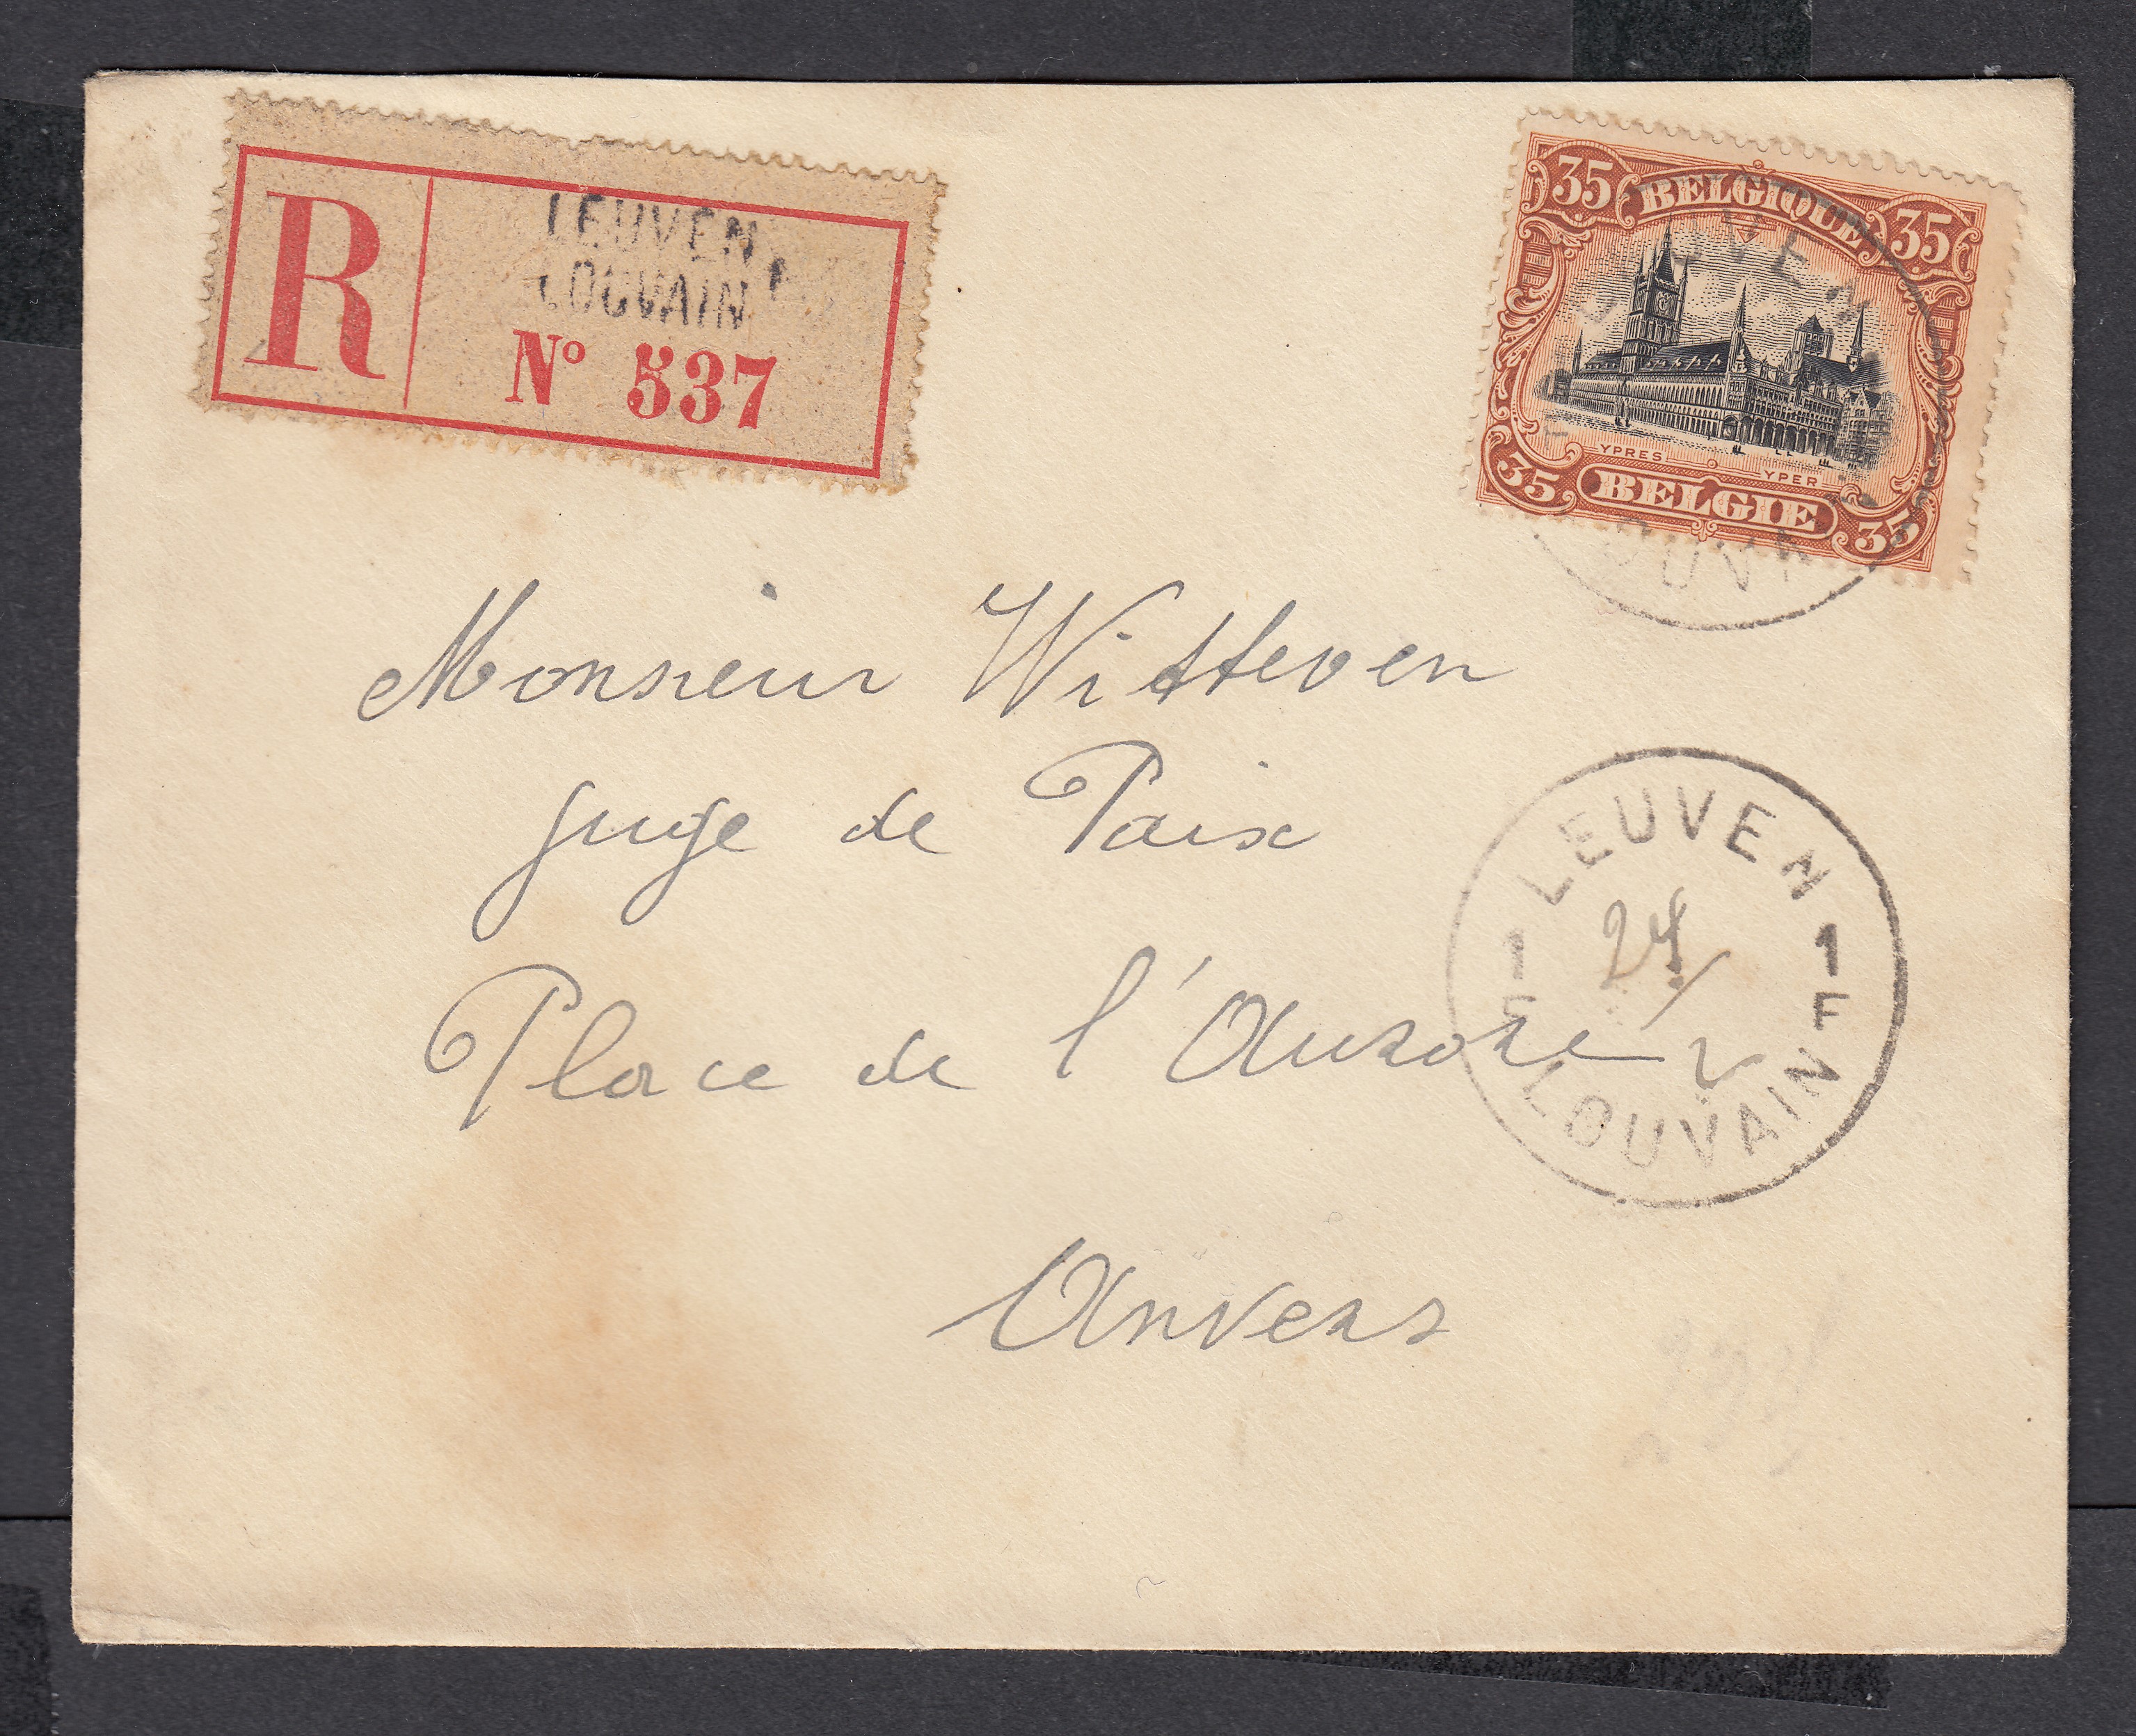 R
LEUVEN
LOUVAIN
Nº 537
35 BELGIQUE 35
YPRES
YPER
35 BELGIE 35
LEUVEN
Monsieur Witteven
Juge de Paix
Place de l'Aurore
Anvers
LEUVEN
1 24 1
F F
LOUVAIN